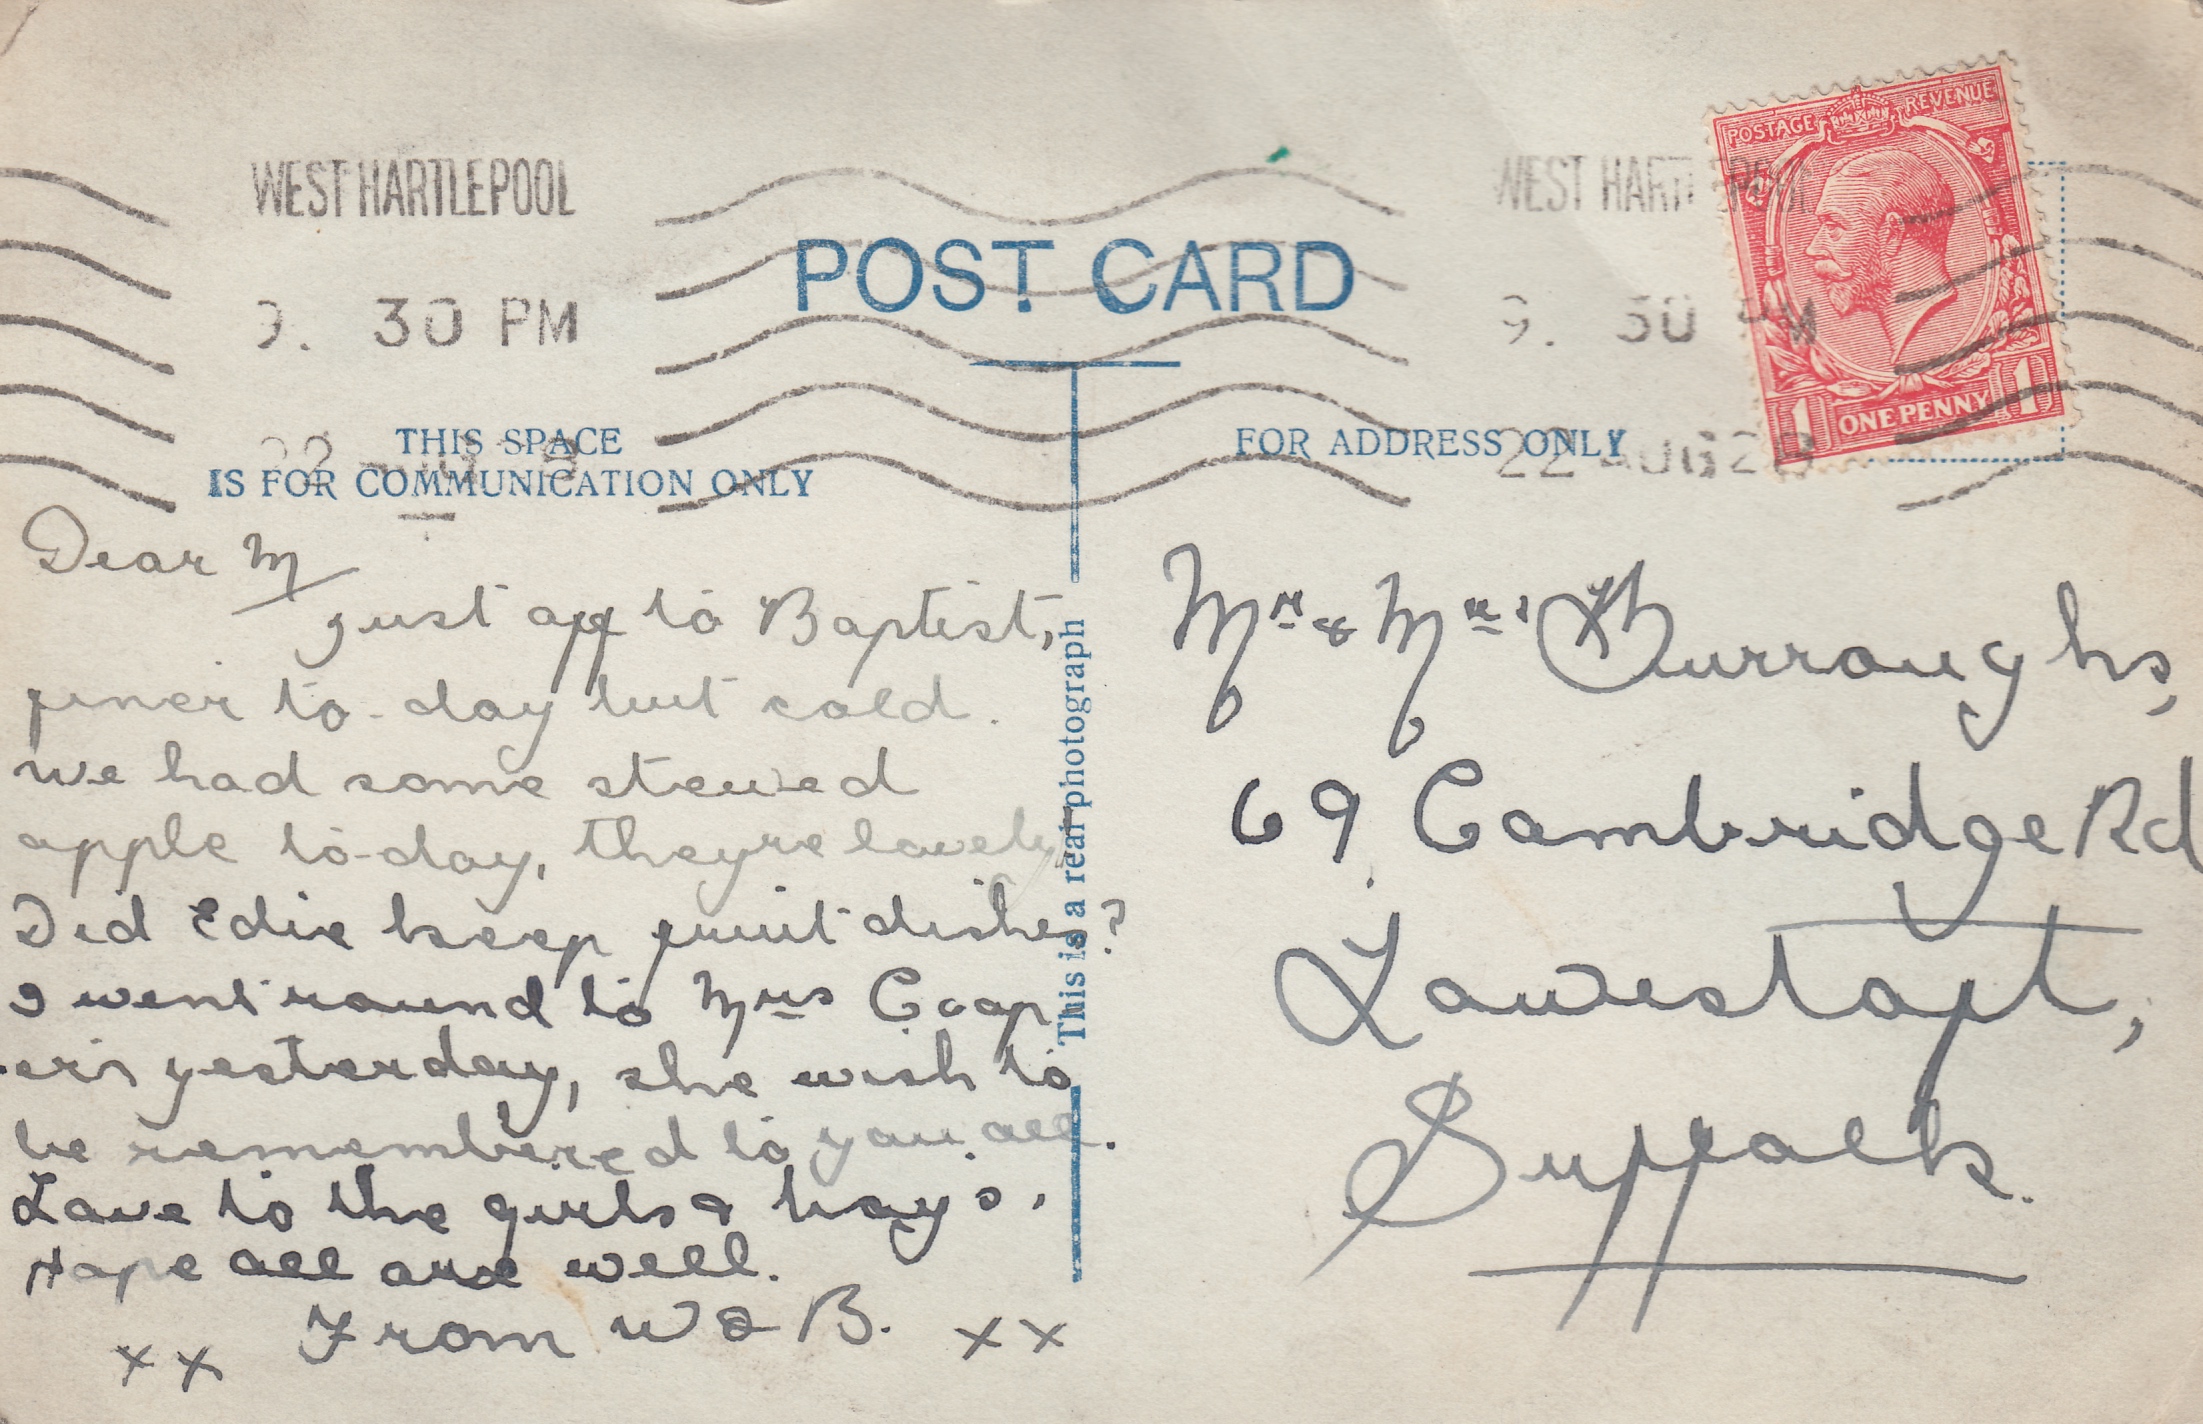 WEST HARTLEPOOL
9. 30 PM
22
POST CARD
WEST HARTLEPOOL
9. 30 PM
22 AUG 28
POSTAGE REVENUE
1 ONE PENNY 1
THIS SPACE
IS FOR COMMUNICATION ONLY
FOR ADDRESS ONLY
This is a real photograph
Dear M
just off to Baptist,
finer to-day but cold.
we had some stewed
apple to-day, they're lovely
Did Edie keep fruit dishes?
I went round to Mrs Coop
er's yesterday, she wish to
be remembered to you all.
Love to the girls & boys.
Hope all are well.
From W & B. x x
x x
Mr & Mrs Burroughs,
69 Cambridge Rd
Lowestoft,
Suffolk.